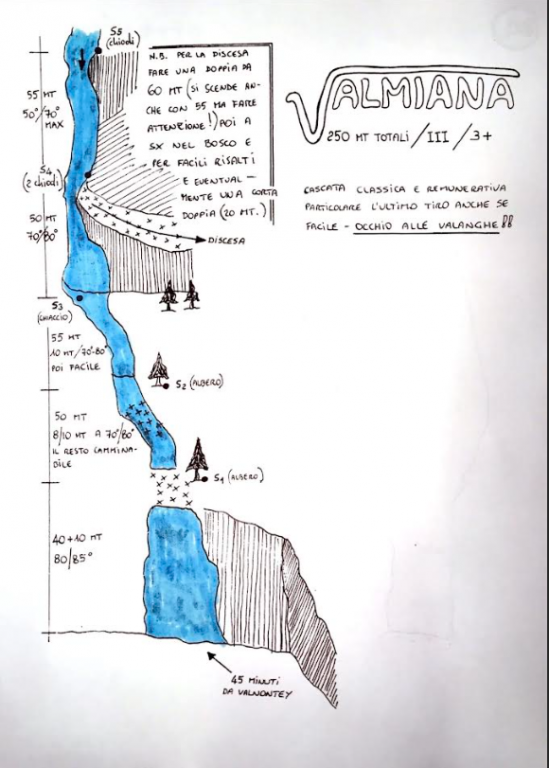 S5
(chiodi)
N.B. PER LA DISCESA
FARE UNA DOPPIA DA
60 MT (SI SCENDE AN-
CHE CON 55 MA FARE
ATTENZIONE!) POI A
SX NEL BOSCO E
PER FACILI RISALTI
E EVENTUAL-
MENTE UNA CORTA
DOPPIA (20 MT.)
DISCESA
VALMIANA
250 MT TOTALI / III / 3+
CASCATA CLASSICA E REMUNERATIVA
PARTICOLARE L'ULTIMO TIRO ANCHE SE
FACILE - OCCHIO ALLE VALANGHE !!
55 MT
50°/70°
MAX
S4
(2 chiodi)
50 MT
70°/80°
S3
(GHIACCIO)
55 MT
10 MT/70°-80°
POI FACILE
S2 (ALBERO)
50 MT
8/10 MT A 70°/80°
IL RESTO CAMMINA-
BILE
S1 (ALBERO)
40+10 MT
80/85°
45 MINUTI
DA VALNONTEY